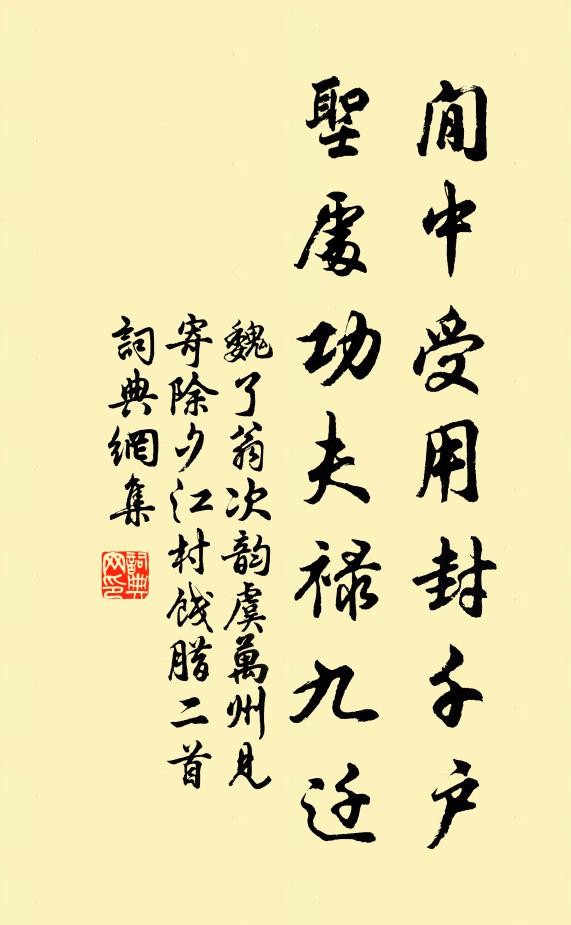 閒中受用封千户
聖處功夫禄九迁
魏了翁次韵虞萬州見
寄除夕江村餞腊二首
詞典網集
詞典
网印